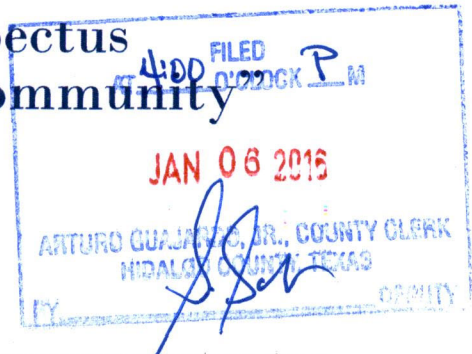 pectus
ommunity”
FILED
AT 4:00 O'CLOCK P M
JAN 06 2016
ARTURO GUAJARDO, JR., COUNTY CLERK
HIDALGO COUNTY, TEXAS
BY DEPUTY